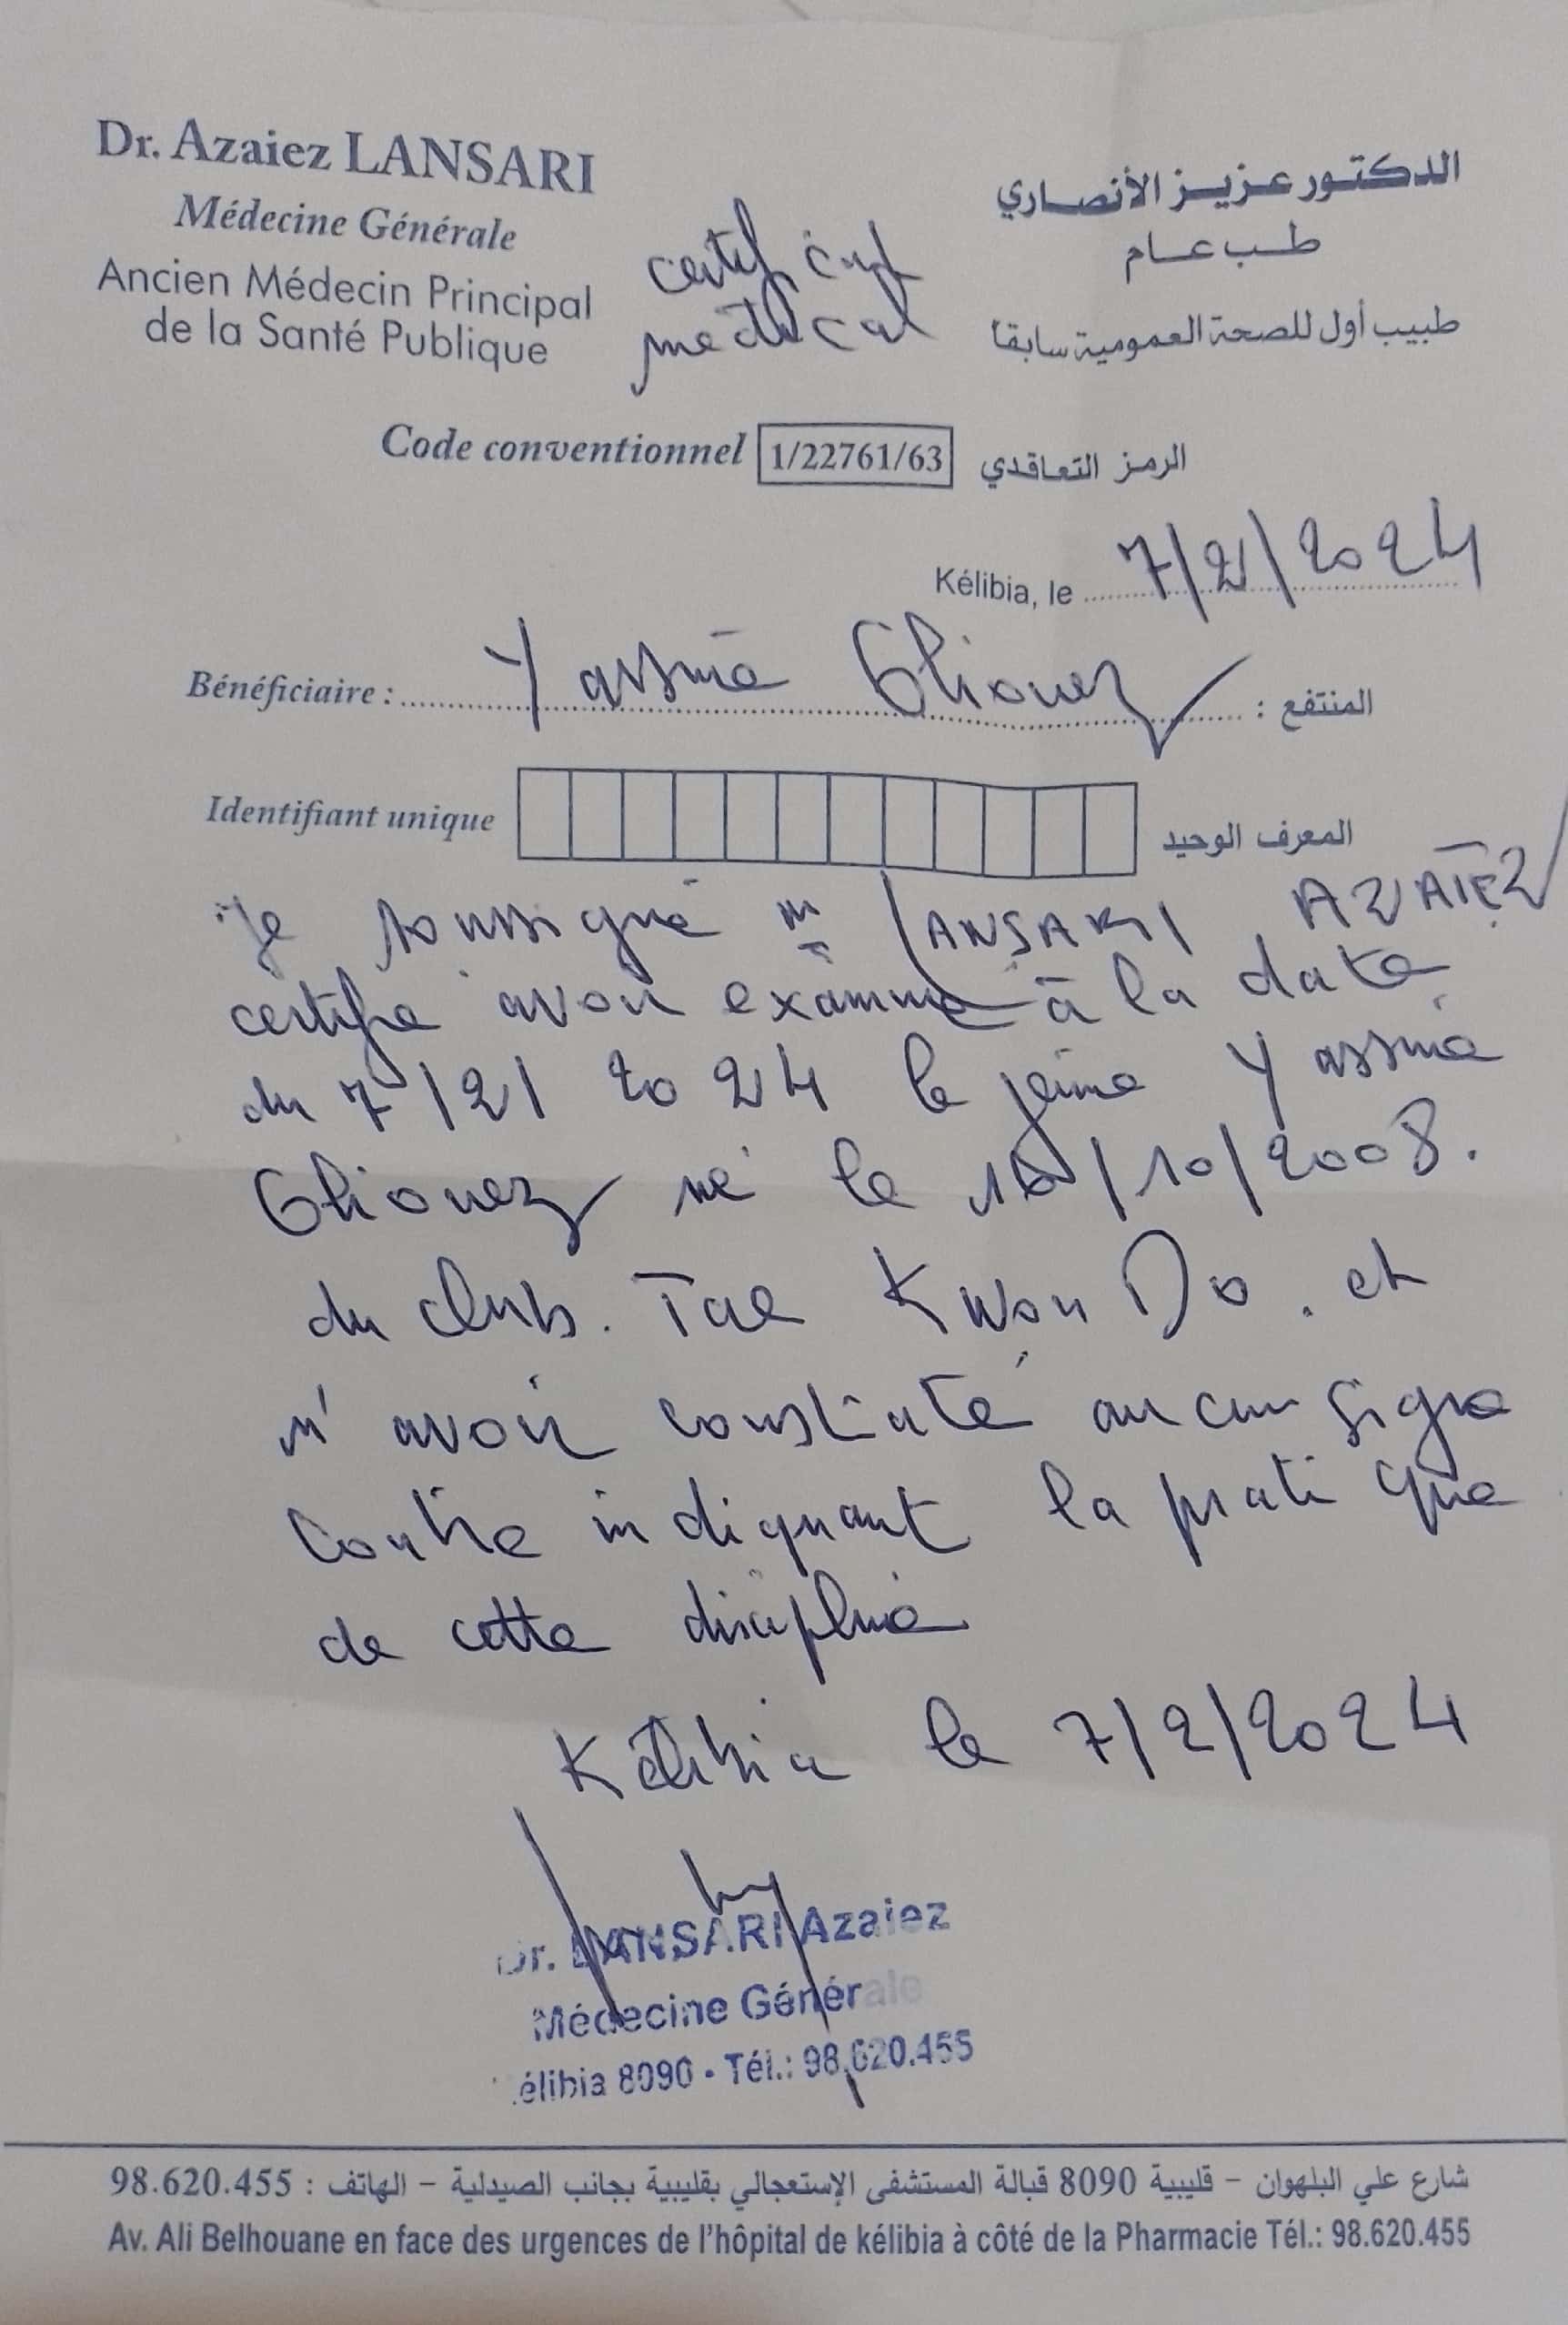 Dr. Azaiez LANSARI
Médecine Générale
Ancien Médecin Principal
de la Santé Publique
certificat
médical
الدكتور عزيز الأنصاري
طب عام
طبيب أول للصحة العمومية سابقا
Code conventionnel 1/22761/63 الرمز التعاقدي
Kélibia, le 7/2/2024
Bénéficiaire : Yassine : المنتفع
Identifiant unique المعرف الوحيد
Je soussigné LANSARI AZAIEZ
certifie avoir examiné à la date
du 7/2/2024 le jeune Yassine
né le /10/2008.
du club. Tae Kwon Do. et
n'avoir constaté aucun signe
contre indiquant la pratique
de cette discipline
Kélibia le 7/2/2024
Dr. LANSARI Azaiez
Médecine Générale
élibia 8090 - Tél.: 98.620.455
شارع علي البلهوان - قليبية 8090 قبالة المستشفى الإستعجالي بقليبية بجانب الصيدلية - الهاتف : 98.620.455
Av. Ali Belhouane en face des urgences de l'hôpital de kélibia à côté de la Pharmacie Tél.: 98.620.455